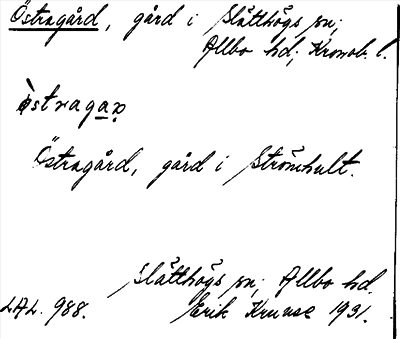 Östragård, gård i Slätthögs sn;
Allbo hd; Kronob. l.
östragaṛ
Östragård, gård i Strömhult.
Slätthögs sn; Allbo hd.
LAL. 988. Erik Kruuse 1931.